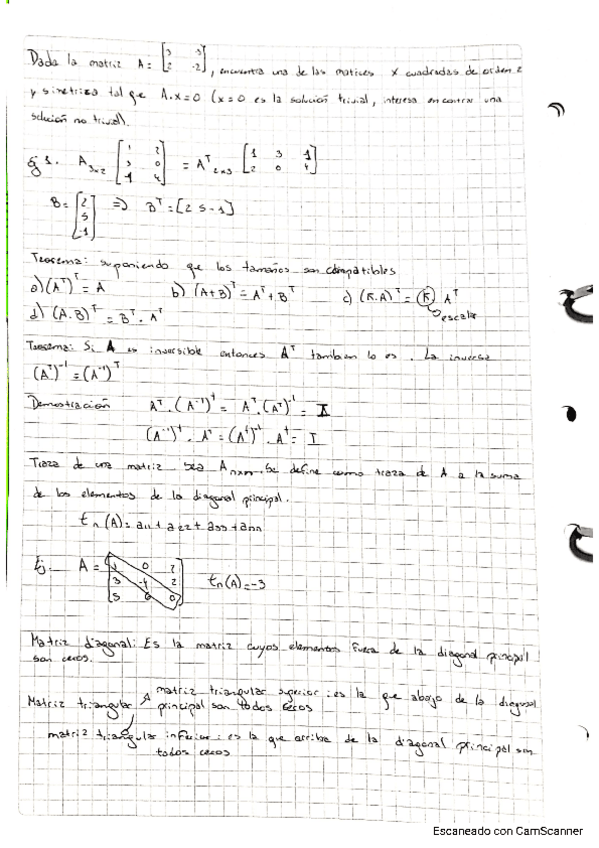 Dada la matriz A = [3 3; 2 -2], encuentra una de las matrices x cuadradas de orden 2
y simetrica tal que A.x=0 (x=0 es la solución trivial, interesa encontrar una
solución no trivial).
Ej 1. A 3x2 [1 2; 3 0; 1 4] = A^T 2x3 [1 3 1; 2 0 4]
B = [2; 5; -1] => B^T = [2 5 -1]
Teorema: suponiendo que los tamaños son compatibles
a) (A^T)^T = A b) (A+B)^T = A^T + B^T c) (K.A)^T = K A^T
escalar
d) (A.B)^T = B^T . A^T
Teorema: Si A es inversible entonces A^T tambien lo es. La inversa
(A^T)^-1 = (A^-1)^T
Demostración A^T . (A^-1)^T = A^T . (A^T)^-1 = I
(A^-1)^T . A^T = (A^T)^-1 . A^T = I
Traza de una matriz Sea A nxn. Se define como traza de A a la suma
de los elementos de la diagonal principal.
tr(A) = a11 + a22 + a33 + ann
Ej. A = [1 0 2; 3 -4 2; 5 6 0] tr(A) = -3
Matriz diagonal: Es la matriz cuyos elementos fuera de la diagonal principal
son ceros.
matriz triangular superior: es la que abajo de la diagonal
Matriz triangular principal son todos ceros
matriz triangular inferior: es la que arriba de la diagonal principal son
todos ceros
Escaneado con CamScanner